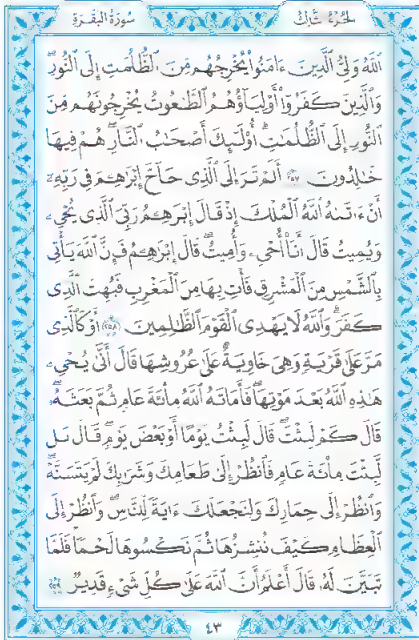 الجزء الثالث
سورة البقرة
اللَّهُ وَلِيُّ الَّذِينَ ءَامَنُوا يُخْرِجُهُم مِّنَ الظُّلُمَٰتِ إِلَى النُّورِ
وَالَّذِينَ كَفَرُوا أَوْلِيَآؤُهُمُ الطَّٰغُوتُ يُخْرِجُونَهُم مِّنَ
النُّورِ إِلَى الظُّلُمَٰتِ أُولَٰٓئِكَ أَصْحَٰبُ النَّارِ هُمْ فِيهَا
خَٰلِدُونَ ٢٥٧ أَلَمْ تَرَ إِلَى الَّذِي حَآجَّ إِبْرَٰهِمَ فِي رَبِّهِۦٓ
أَنْ ءَاتَىٰهُ اللَّهُ الْمُلْكَ إِذْ قَالَ إِبْرَٰهِمُ رَبِّيَ الَّذِي يُحْيِۦ
وَيُمِيتُ قَالَ أَنَا۠ أُحْيِۦ وَأُمِيتُ قَالَ إِبْرَٰهِمُ فَإِنَّ اللَّهَ يَأْتِي
بِالشَّمْسِ مِنَ الْمَشْرِقِ فَأْتِ بِهَا مِنَ الْمَغْرِبِ فَبُهِتَ الَّذِي
كَفَرَ وَاللَّهُ لَا يَهْدِي الْقَوْمَ الظَّٰلِمِينَ ٢٥٨ أَوْ كَالَّذِي
مَرَّ عَلَىٰ قَرْيَةٍ وَهِيَ خَاوِيَةٌ عَلَىٰ عُرُوشِهَا قَالَ أَنَّىٰ يُحْيِۦ
هَٰذِهِ اللَّهُ بَعْدَ مَوْتِهَا فَأَمَاتَهُ اللَّهُ مِائَةَ عَامٍ ثُمَّ بَعَثَهُۥ
قَالَ كَمْ لَبِثْتَ قَالَ لَبِثْتُ يَوْمًا أَوْ بَعْضَ يَوْمٍ قَالَ بَل
لَّبِثْتَ مِائَةَ عَامٍ فَانظُرْ إِلَىٰ طَعَامِكَ وَشَرَابِكَ لَمْ يَتَسَنَّهْ
وَانظُرْ إِلَىٰ حِمَارِكَ وَلِنَجْعَلَكَ ءَايَةً لِّلنَّاسِ وَانظُرْ إِلَى
الْعِظَامِ كَيْفَ نُنشِزُهَا ثُمَّ نَكْسُوهَا لَحْمًا فَلَمَّا
تَبَيَّنَ لَهُۥ قَالَ أَعْلَمُ أَنَّ اللَّهَ عَلَىٰ كُلِّ شَيْءٍ قَدِيرٌ ٢٥٩
٤٣